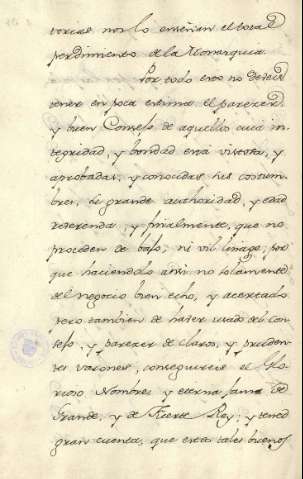 torias nos lo enseñan el total
perdimiento de la Monarquia
Por todo esto no deveis
tener en poca estima el parecer,
y buen Consejo de aquellos cuia in
tegridad, y bondad está vista, y
aprobadas, y conocidas sus costum
bres, su grande authoridad, y edad
reverenda, y finalmente, que no
proceden de bajo, ni vil linage, por
que haciendolo assi no solamente
del negocio bien echo, y acertado
pero tambien de haver usado del con
sejo, y parecer de claros, y pruden
tes varones, conseguireis el glo
rioso Nombre, y eterna fama de
Grande, y de Fuerte Rey; y tened
gran cuenta, que estos tales buenos